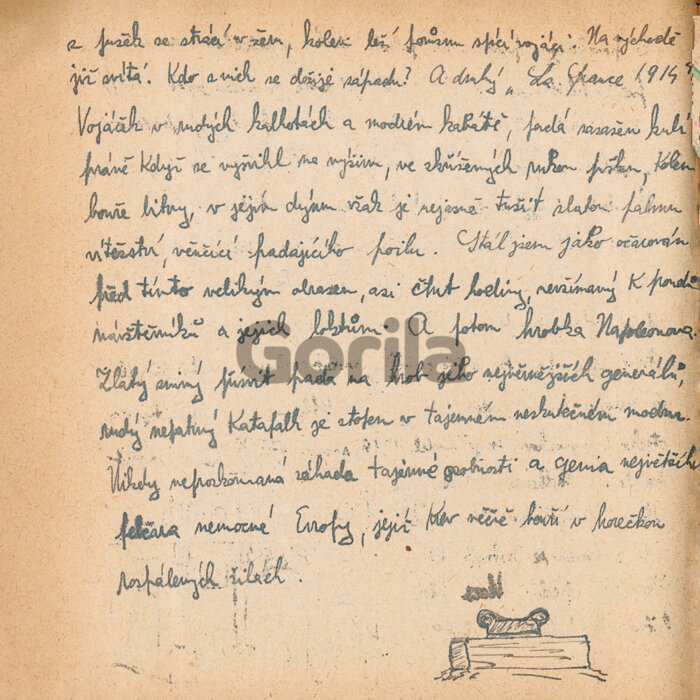 z pušek se ztrácí v zem, kolem leží spící vojáci. Na východě
již svítá. Kdo z nich se dožije západu? A druhý „La France 1914"
Vojáček v rudých kalhotách a modrém kabátě, padá zasažen kulí
právě když se vyšvihl na výšinu, ve zkřížených rukou pušku, kolem
bouře bitvy, v jejím dýmu však je nejasně tušit zlatou palmu
vítězství, věnčící padajícího poilu. Stál jsem jako očarován
před tímto velikým obrazem, asi čtvrt hodiny, nevšímaný K
návštěvníků a jejich loktům. A potom hrobka Napoleonova.
Zlatý přísvit padá na hrob jeho nejvěrnějších generálů,
rudý Katafalk je stopen v tajemném neskutečném modru.
Nikdy neproskoumaná záhada tajemné osobnosti a genia největšího
felčara nemocné Evropy, jejíž krev věčně bouří v horečkou
rozpálených žilách.
Gorila